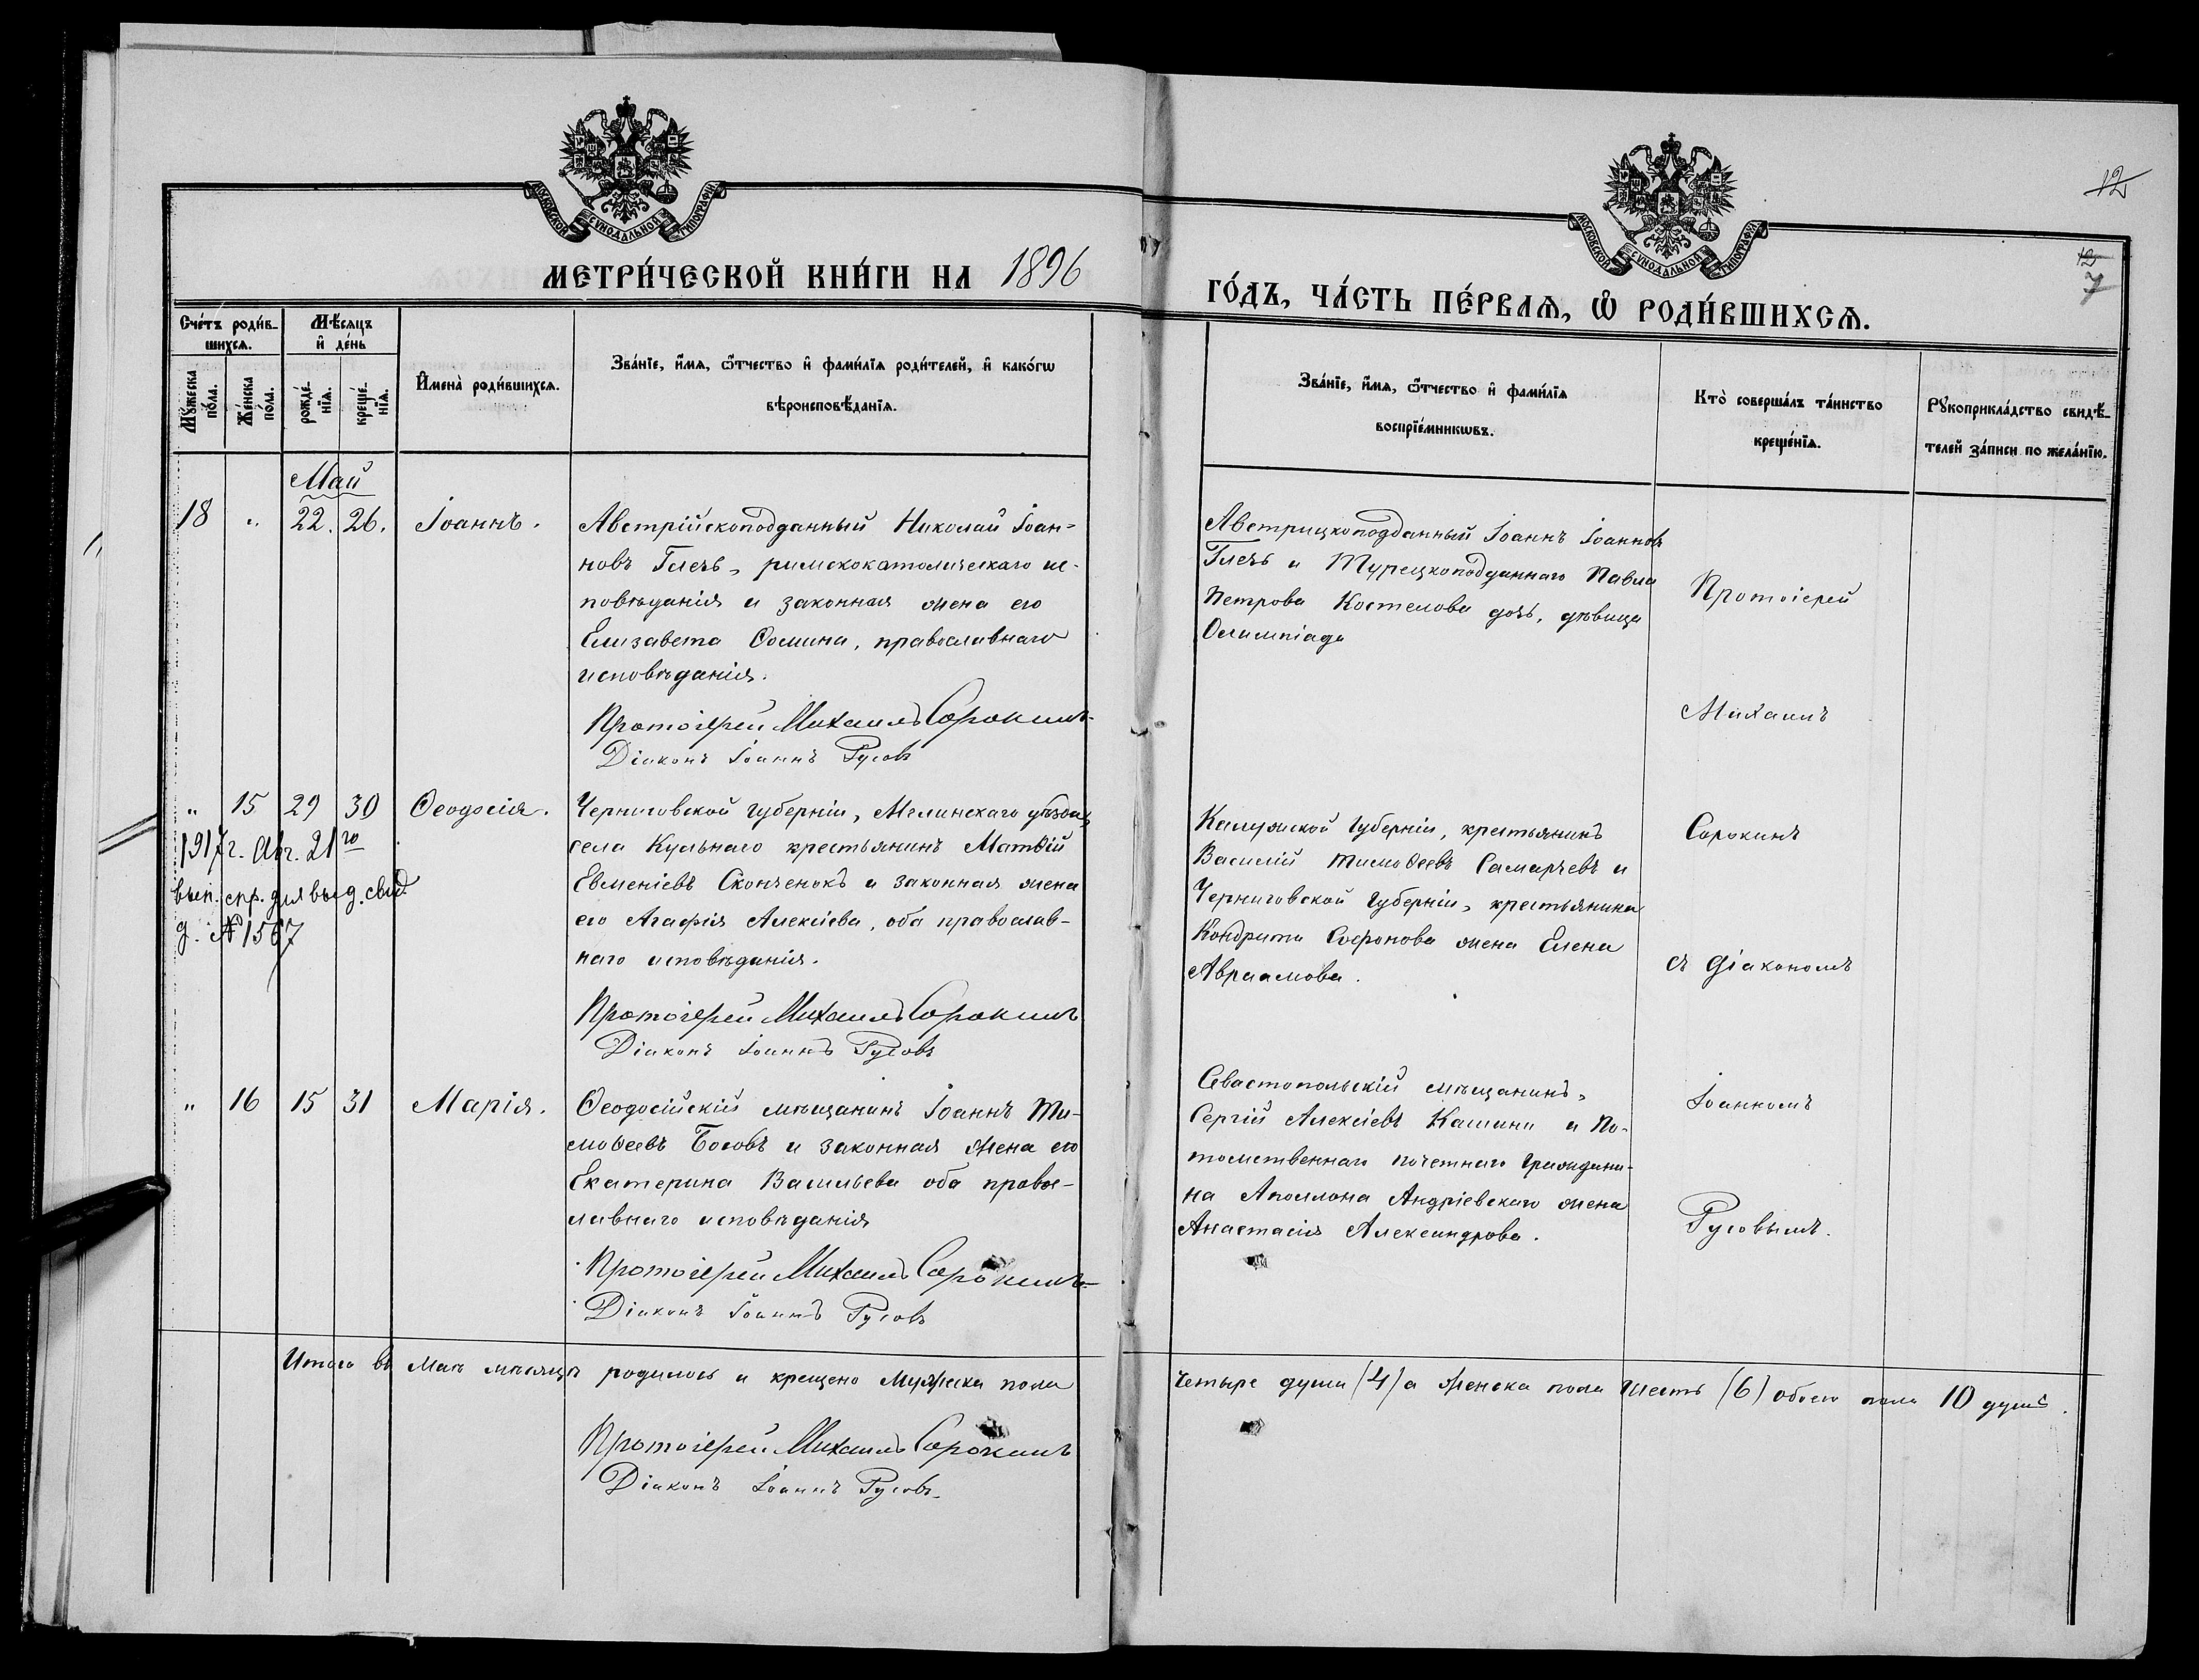 МОСКОВСКОЙ СѴНОДАЛЬНОЙ ТИПОГРАФІИ
МОСКОВСКОЙ СѴНОДАЛЬНОЙ ТИПОГРАФІИ
12
12
7
МЕТРИ́ЧЕСКОЙ КНИ́ГИ НА 1896
ГО́ДЪ, ЧА́СТЬ ПЕ́РВАѦ, Ѿ РОДИ́ВШИХСѦ.
Сче́тъ роди́в-
шихсѧ.
Мꙋ́жеска
по́ла.
Же́нска
по́ла.
Мѣ́сѧцъ
и҆ де́нь
рожде́-
нїѧ.
креще́-
нїѧ.
И҆мена̀ роди́вшихсѧ.
Зва́нїе, и҆́мѧ, ѻ҆́тчество и҆ фами́лїѧ роди́телей, и҆ како́гѡ
вѣроисповѣ́данїѧ.
Зва́нїе, и҆́мѧ, ѻ҆́тчество и҆ фами́лїѧ
воспрїе́мникѡвъ.
Кто̀ соверша́лъ та́инство
креще́нїѧ.
Рꙋкоприкла́дство свидѣ́-
телей за́писи по жела́нїю.
Май
18 " 22. 26. Іоаннъ. Австрійскоподданный Николай Іоан-
новъ Глечь, римскокатолическаго ис-
повѣданія и законная жена его
Елизавета Ѳомина, православнаго
исповѣданія.
Протоіерей Михаилъ Сорокинъ
Діаконъ Іоаннъ Русовъ
Австрицкоподданный Іоаннъ Іоанновъ
Глечь и Турецкоподданнаго Павла
Петрова Костелова дочь, дѣвица
Олимпіада
Протоіерей
Михаилъ
" 15 29 30 Ѳеодосія. Черниговской губерніи, Мглинскаго уѣзда,
села Кульнаго крестьянинъ Матѳій
Евменіевъ Сконченокъ и законная жена
его Агафія Алексіева, оба православ-
наго исповѣданія.
1917 г. Авг. 21го
вып. спр. для выд. свид.
д. № 1567
Протоіерей Михаилъ Сорокинъ
Діаконъ Іоаннъ Русовъ
Калужской губерніи, крестьянинъ
Василій Тимоѳеевъ Самарчевъ и
Черниговской губерніи, крестьянина
Кондрата Софонова жена Елена
Авраамова.
Сорокинъ
съ діакономъ
" 16 15 31 Марія. Ѳеодосійскій мѣщанинъ Іоаннъ Ти-
моѳеевъ Босовъ и законная жена его
Екатерина Васильева оба правос-
лавнаго исповѣданія
Протоіерей Михаилъ Сорокинъ
Діаконъ Іоаннъ Русовъ
Севастопольскій мѣщанинъ,
Сергій Алексіевъ Кашинъ и По-
томственнаго почетнаго гражdани-
на Аполлона Андріевскаго жена
Анастасія Александрова.
Іоанномъ
Русовымъ.
Итого въ маѣ мѣсяцѣ родилось и крещено мужеска пола
четыре души (4) а женска пола шесть (6) обоего пола 10 душъ.
Протоіерей Михаилъ Сорокинъ
Діаконъ Іоаннъ Русовъ